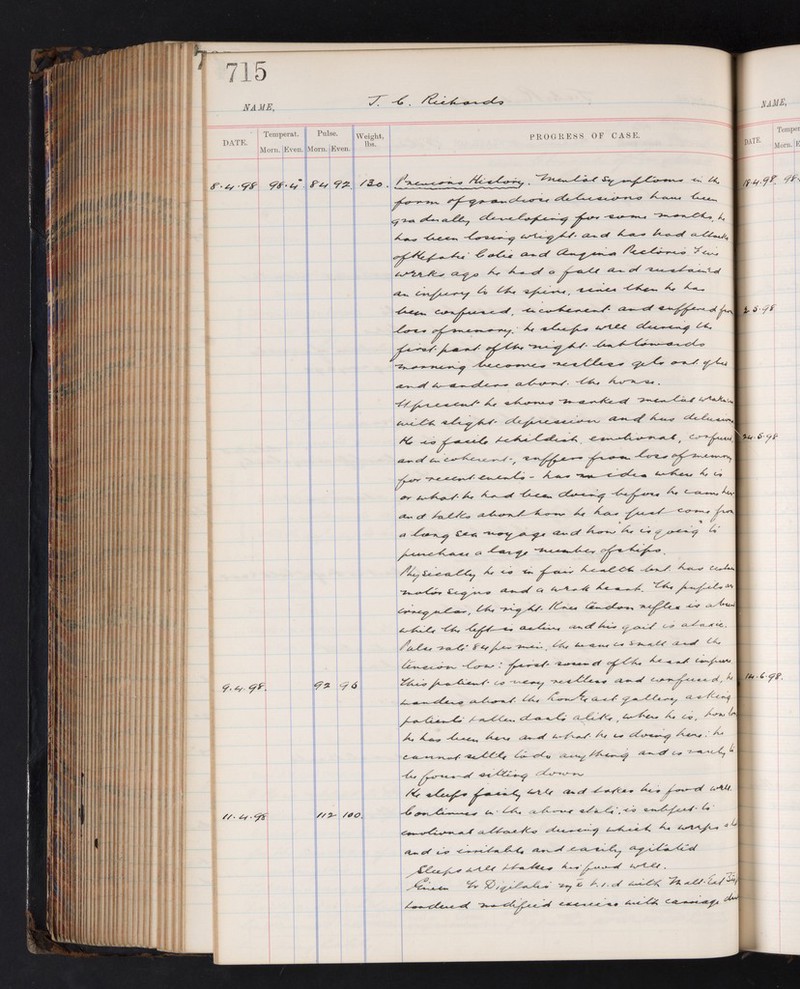 715
NAME, J. C. Richards
DATE. Temperat. Pulse. Weight, lbs. PROGRESS OF CASE.
Morn. Even. Morn. Even.
8.4.98 98.4° 84 92 130. Previous History. Mental Symptoms in the
form of grandiose delusions have been
gradually developing for some months, he
has been losing weight and has had attacks
of Hepatic Colic and Angina Pectoris
weeks ago he had a fall and sustained
an injury to the spine, since then he has
been confused, incoherent and suffered from
loss of memory. he sleeps well during the
first part of the night but towards
morning becomes restless gets out of bed
and wanders about the house.
At present he shows marked mental weakness
with slight depression and has delusions
He is facile & childish, emotional, confused
and incoherent, suffers from loss of memory
for recent events - has no idea where he is
or what he had been doing before he came here
and talks about how he has just come from
a long sea voyage and how he is going to
purchase a large number of ships.
Physically he is in fair health but has certain
motor signs and a weak heart. The pupils are
irregular, the right Knee tendon reflex is absent
while the left is active and his gait is ataxic.
Pulse rate 84 per min, the is small and the
tension low: first sound of the heart impure
9.4.98. 92 96 This patient is very restless and confused, he
wanders about the gallery asking
patients & attendants alike, where he is, how long
he has been here and what he is doing here: he
cannot settle to do anything and is rarely to
be found sitting down
He sleeps fairly well and takes his food well
11.4.98 112 100. Continues in the above state, is subject to
emotional attacks during which he weeps
and is irritable and easily agitated
Sleeps well & takes his food well.
Given Tr Digitalis t.i.d with Malt Ext
& ordered modified exercise with carriage
NAME,
DATE. Temper
Morn. E
18.4.98. 98.
2.5.98
24.5.98
14.6.98.